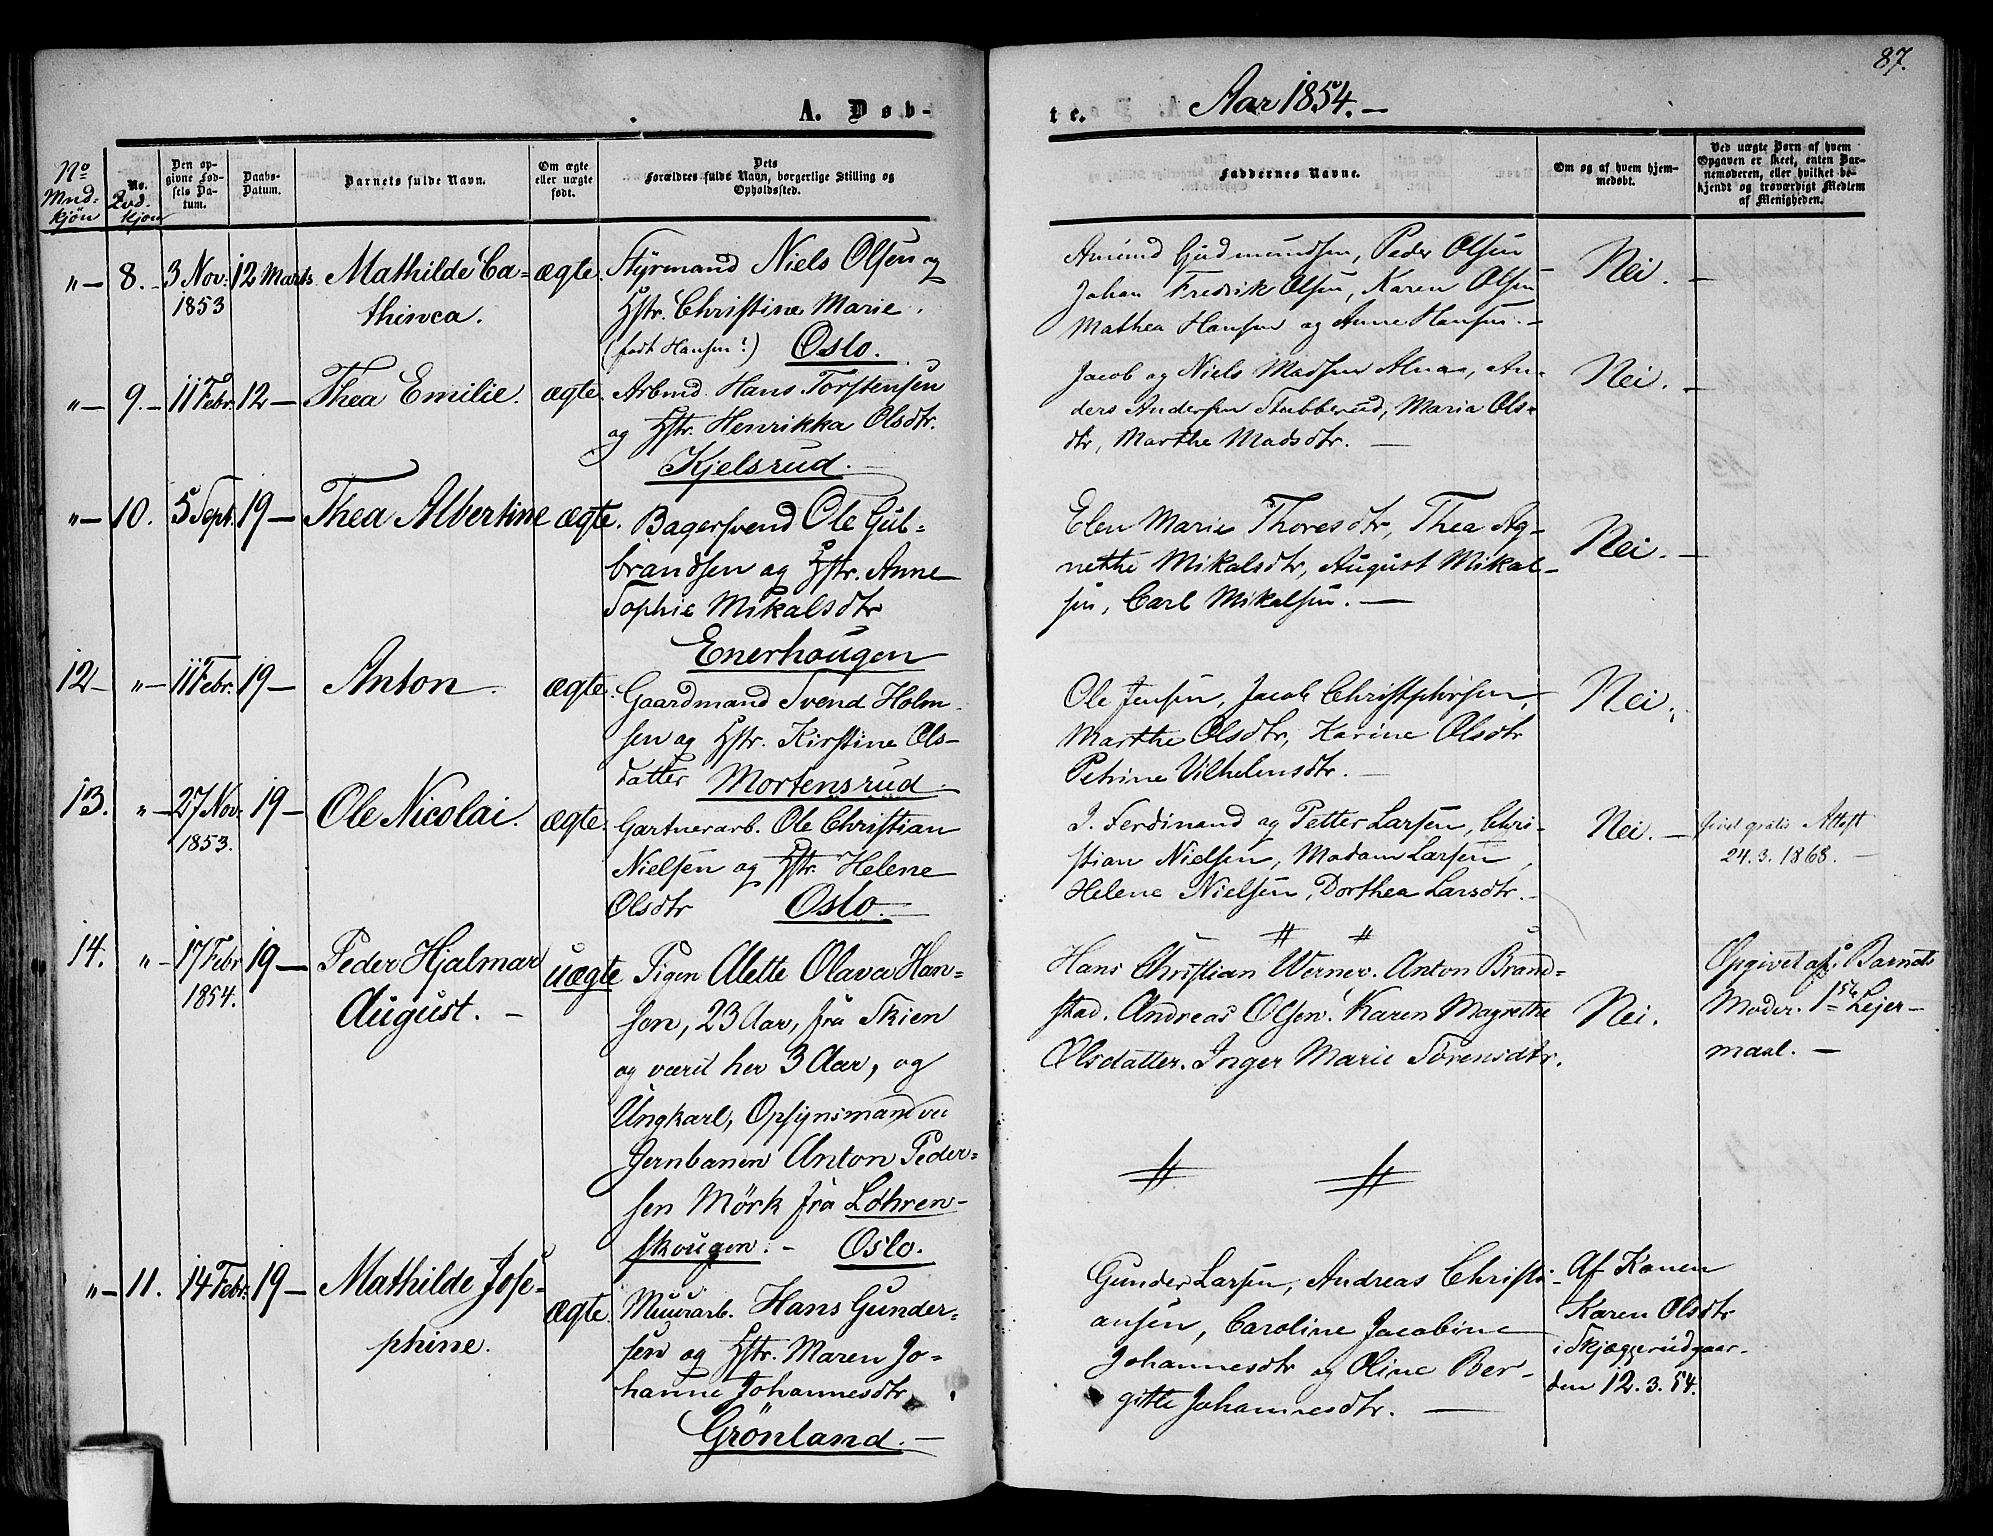 87.
A. Døb-
te. Aar 1854. -
No Mndkjön
No. Qvd. kjön
Den opgivne Fødsels Datum.
Daabs-Datum.
Barnets fulde Navn.
Om ægte eller uægte født.
Dets Forældres fulde Navn, borgerlige Stilling og Opholdssted.
Faddernes Navne.
Om og af hvem hjemmedøbt.
Ved uægte Børn af hvem Opgaven er skeet, enten Barnemoderen, eller hvilket bekjendt og troværdigt Medlem af Menigheden.
"- 8. - 3 Nov: 12 Marts Mathilde Ca- ægte. Styrmand Niels Olsen og
1853 thinca. Hstr. Christine Marie.
(født Hansen?) Oslo.
Amund Gudmundsen, Peder Olsen
Johan Fredrik Olsen, Karen Olsen
Mathea Hansen og Anne Hansen. -
Nei. -
"- 9. - 11 Febr. 12 - Thea Emilie. ægte. Arbmd. Hans Torstensen
og Hstr. Henrikka Olsdtr.
Kjelsrud. -
Jacob og Niels Madsen Alnaa, An-
ders Andersen Stubberud, Maria Ols-
dtr, Marthe Madsdtr. -
Nei. -
"- 10. 5 Sept. 19 - Thea Albertine ægte. Bagersvend Ole Gul-
brandsen og Hstr. Anne
Sophie Mikalsdtr
Enerhougen
Elen Marie Thoresdtr, Thea Ag-
nethe Mikalsdtr, August Mikal-
sen, Carl Mikalsen. -
Nei. -
12 - "- 11 Febr. 19 - Anton. ægte. Gaardmand Svend Holm-
sen og Hstr. Kirstine Ols-
datter Mortensrud. -
Ole Jensen, Jacob Christophersen,
Marthe Olsdtr, Karine Olsdtr
Petrine Vilhelmsdtr. -
Nei.
13. "- 27 Nov: 19 - Ole Nicolai. ægte. Gartnerarb. Ole Christian
1853. Nielsen og Hstr. Helene
Olsdtr Oslo. -
J. Ferdinand og Petter Larsen, Chri-
stian Nielsen, Madam Larsen,
Helene Nielsen, Dorthea Larsdtr. -
Nei. - gratis Attest
24.3.1868. -
14. "- 17 Febr 19 - Peder Hjalmar uægte Pigen Alette Olava Han-
1854. August. - sen, 23 Aar, fra Skien
og været her 3 Aar, og
Ungkarl, Opsynsmand ve
Jernbanen Anton Peder-
sen Mörk fra Löhren-
skougen: - Oslo.
Hans Christian Werner. Anton Brand-
stad. Andreas Olsen. Karen Magrethe
Olsdatter. Inger Marie Sörensdtr.
Nei.
Opgivet af Barnets
Moder. 1ste Lejer-
maal. -
"- 11. 14 Febr: 19 - Mathilde Jose- ægte. Muurarb. Hans Gunder-
phine. sen og Hstr. Maren Jo-
hanne Johannesdtr
Grönland. -
Gunder Larsen, Andreas Christi-
ansen, Caroline Jacobine
Johannesdtr og Oline Ber-
gitte Johannesdtr. -
Af Konen
Karen Olsdtr
i Skjæggerudgaar-
den 12.3.54.